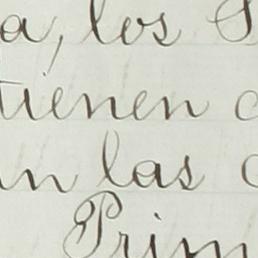 a, los S
tienen c
n las c
Prim